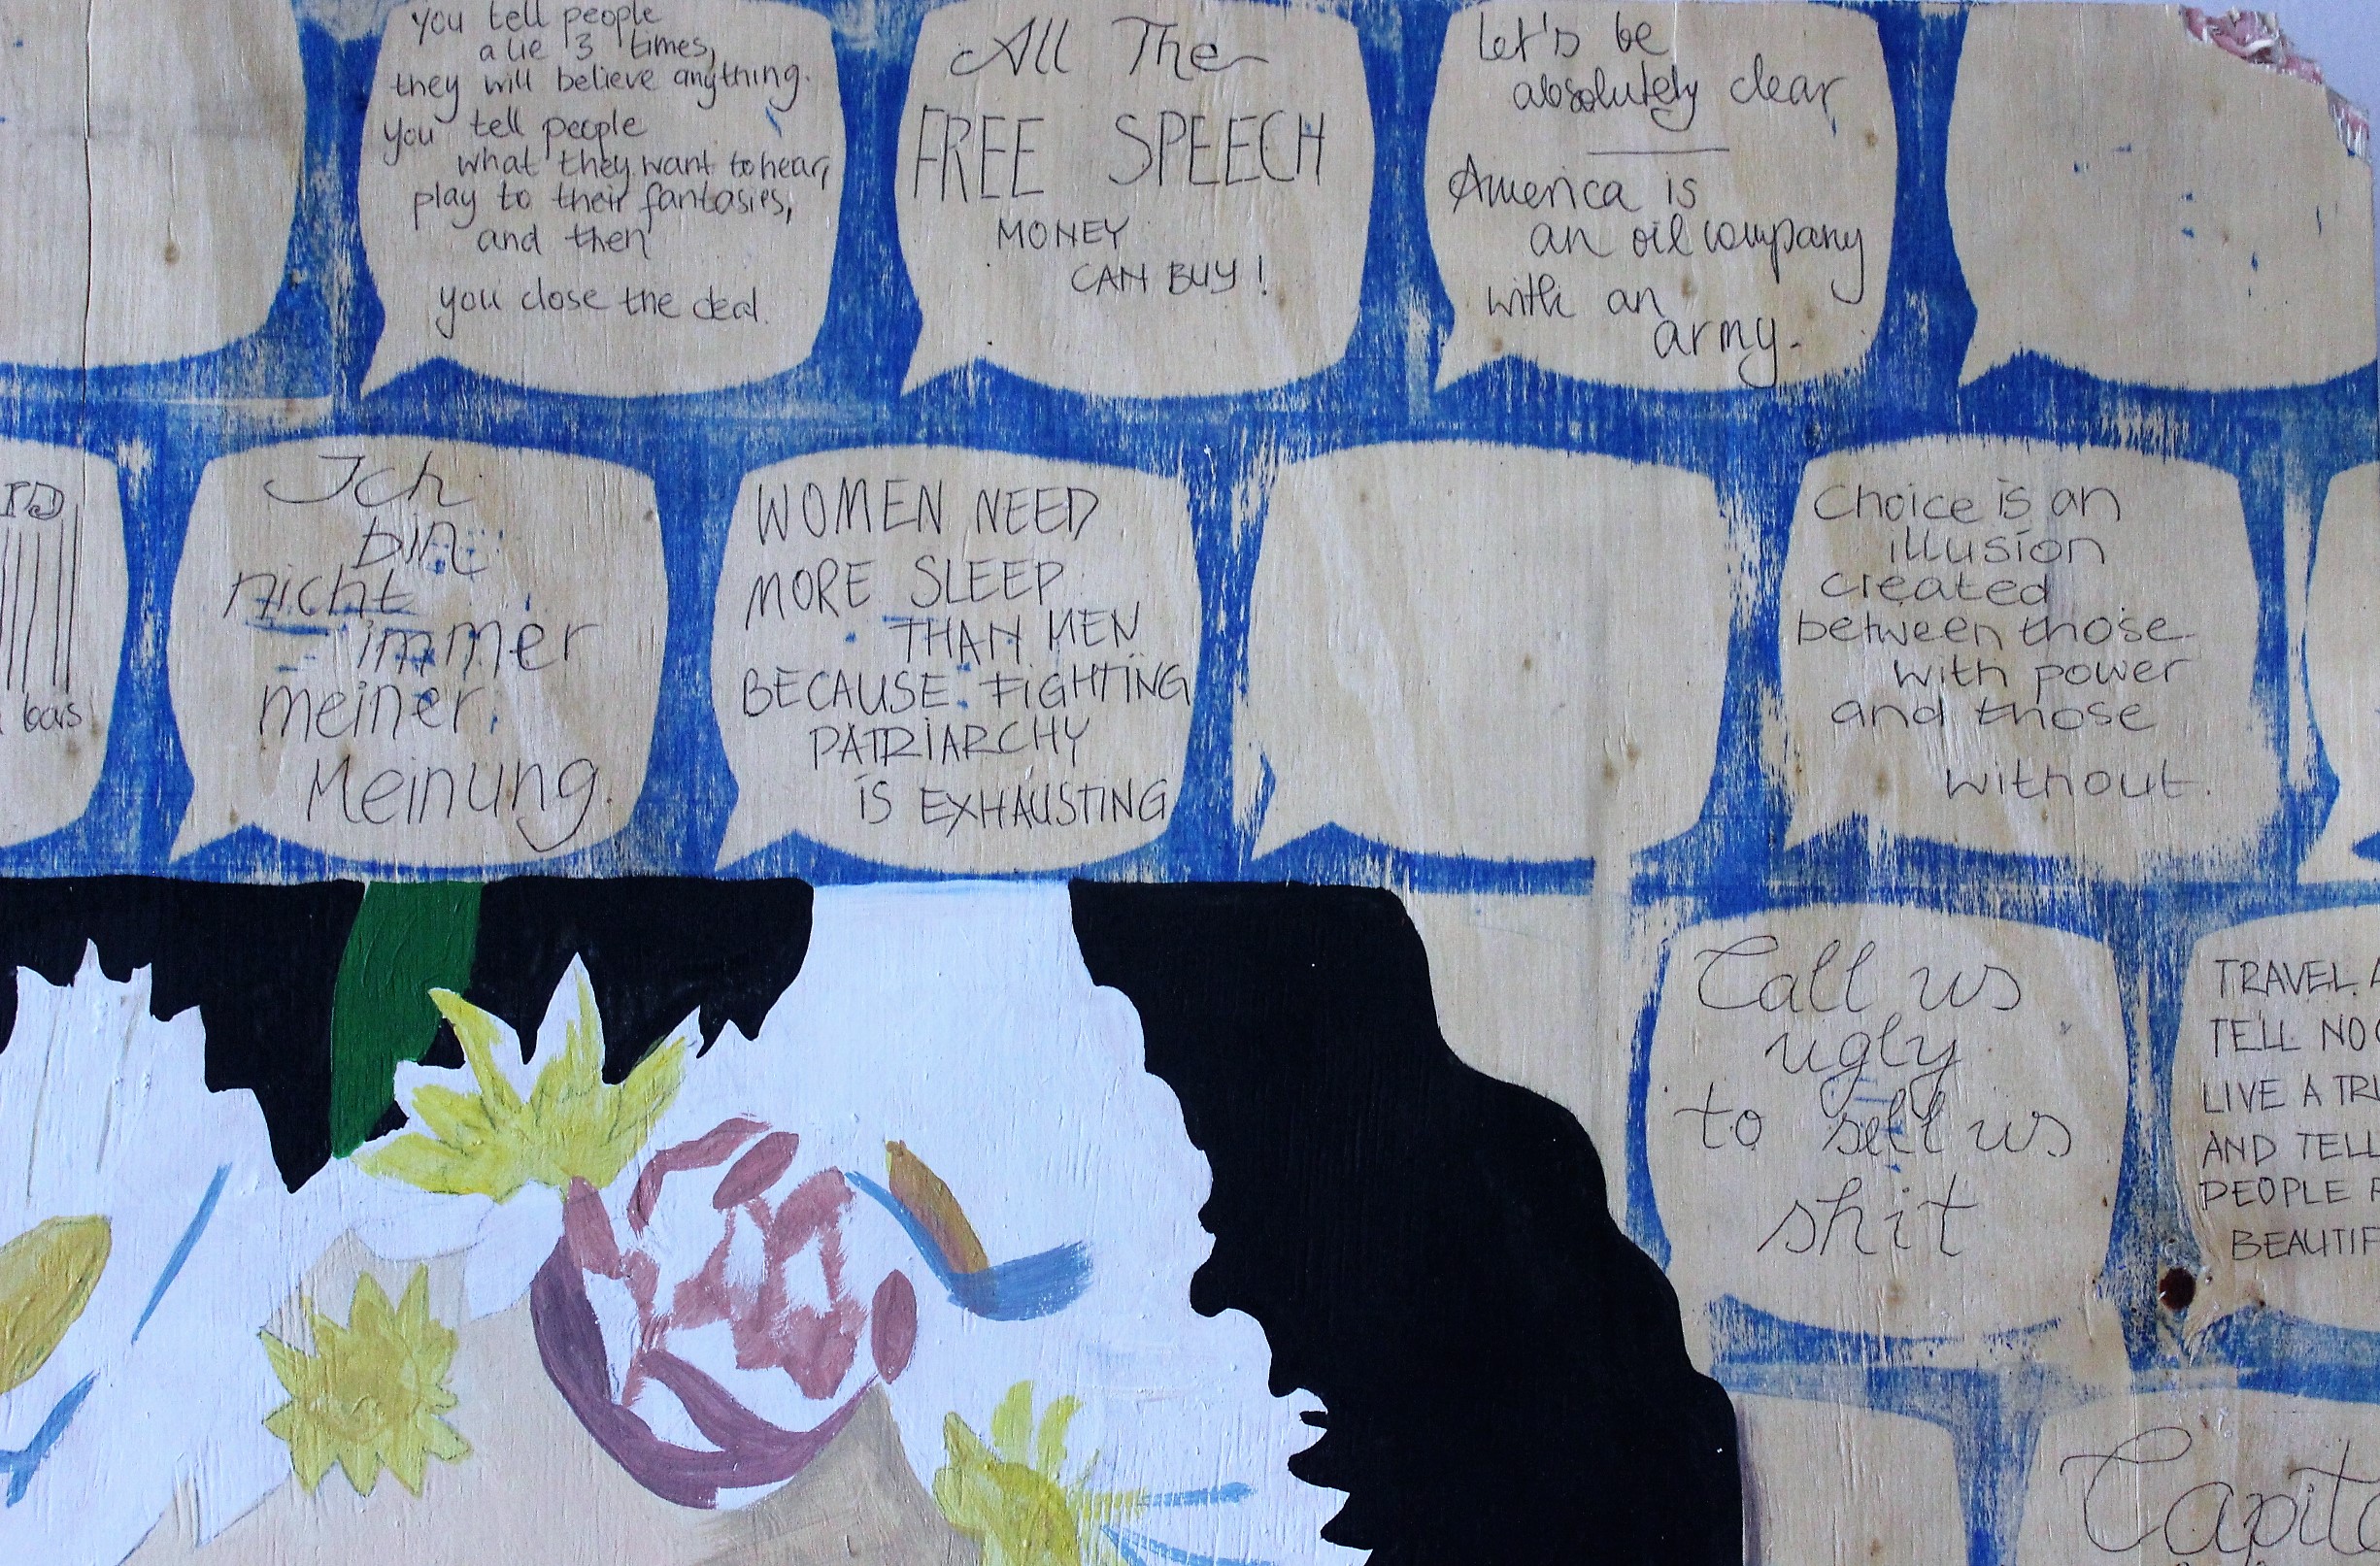 you tell people
a lie 3 times,
they will believe anything.
you tell people
what they want to hear,
play to their fantasies,
and then
you close the deal.
All The
FREE SPEECH
MONEY
CAN BUY!
Let's be
absolutely clear,
America is
an oil company
with an
army.
bars
Ich
bin
nicht
immer
meiner
Meinung.
WOMEN NEED
MORE SLEEP
THAN MEN
BECAUSE FIGHTING
PATRIARCHY
IS EXHAUSTING
Choice is an
illusion
created
between those
with power
and those
without.
Call us
ugly
to sell us
shit
TRAVEL
TELL NO
LIVE A
AND TELL
PEOPLE